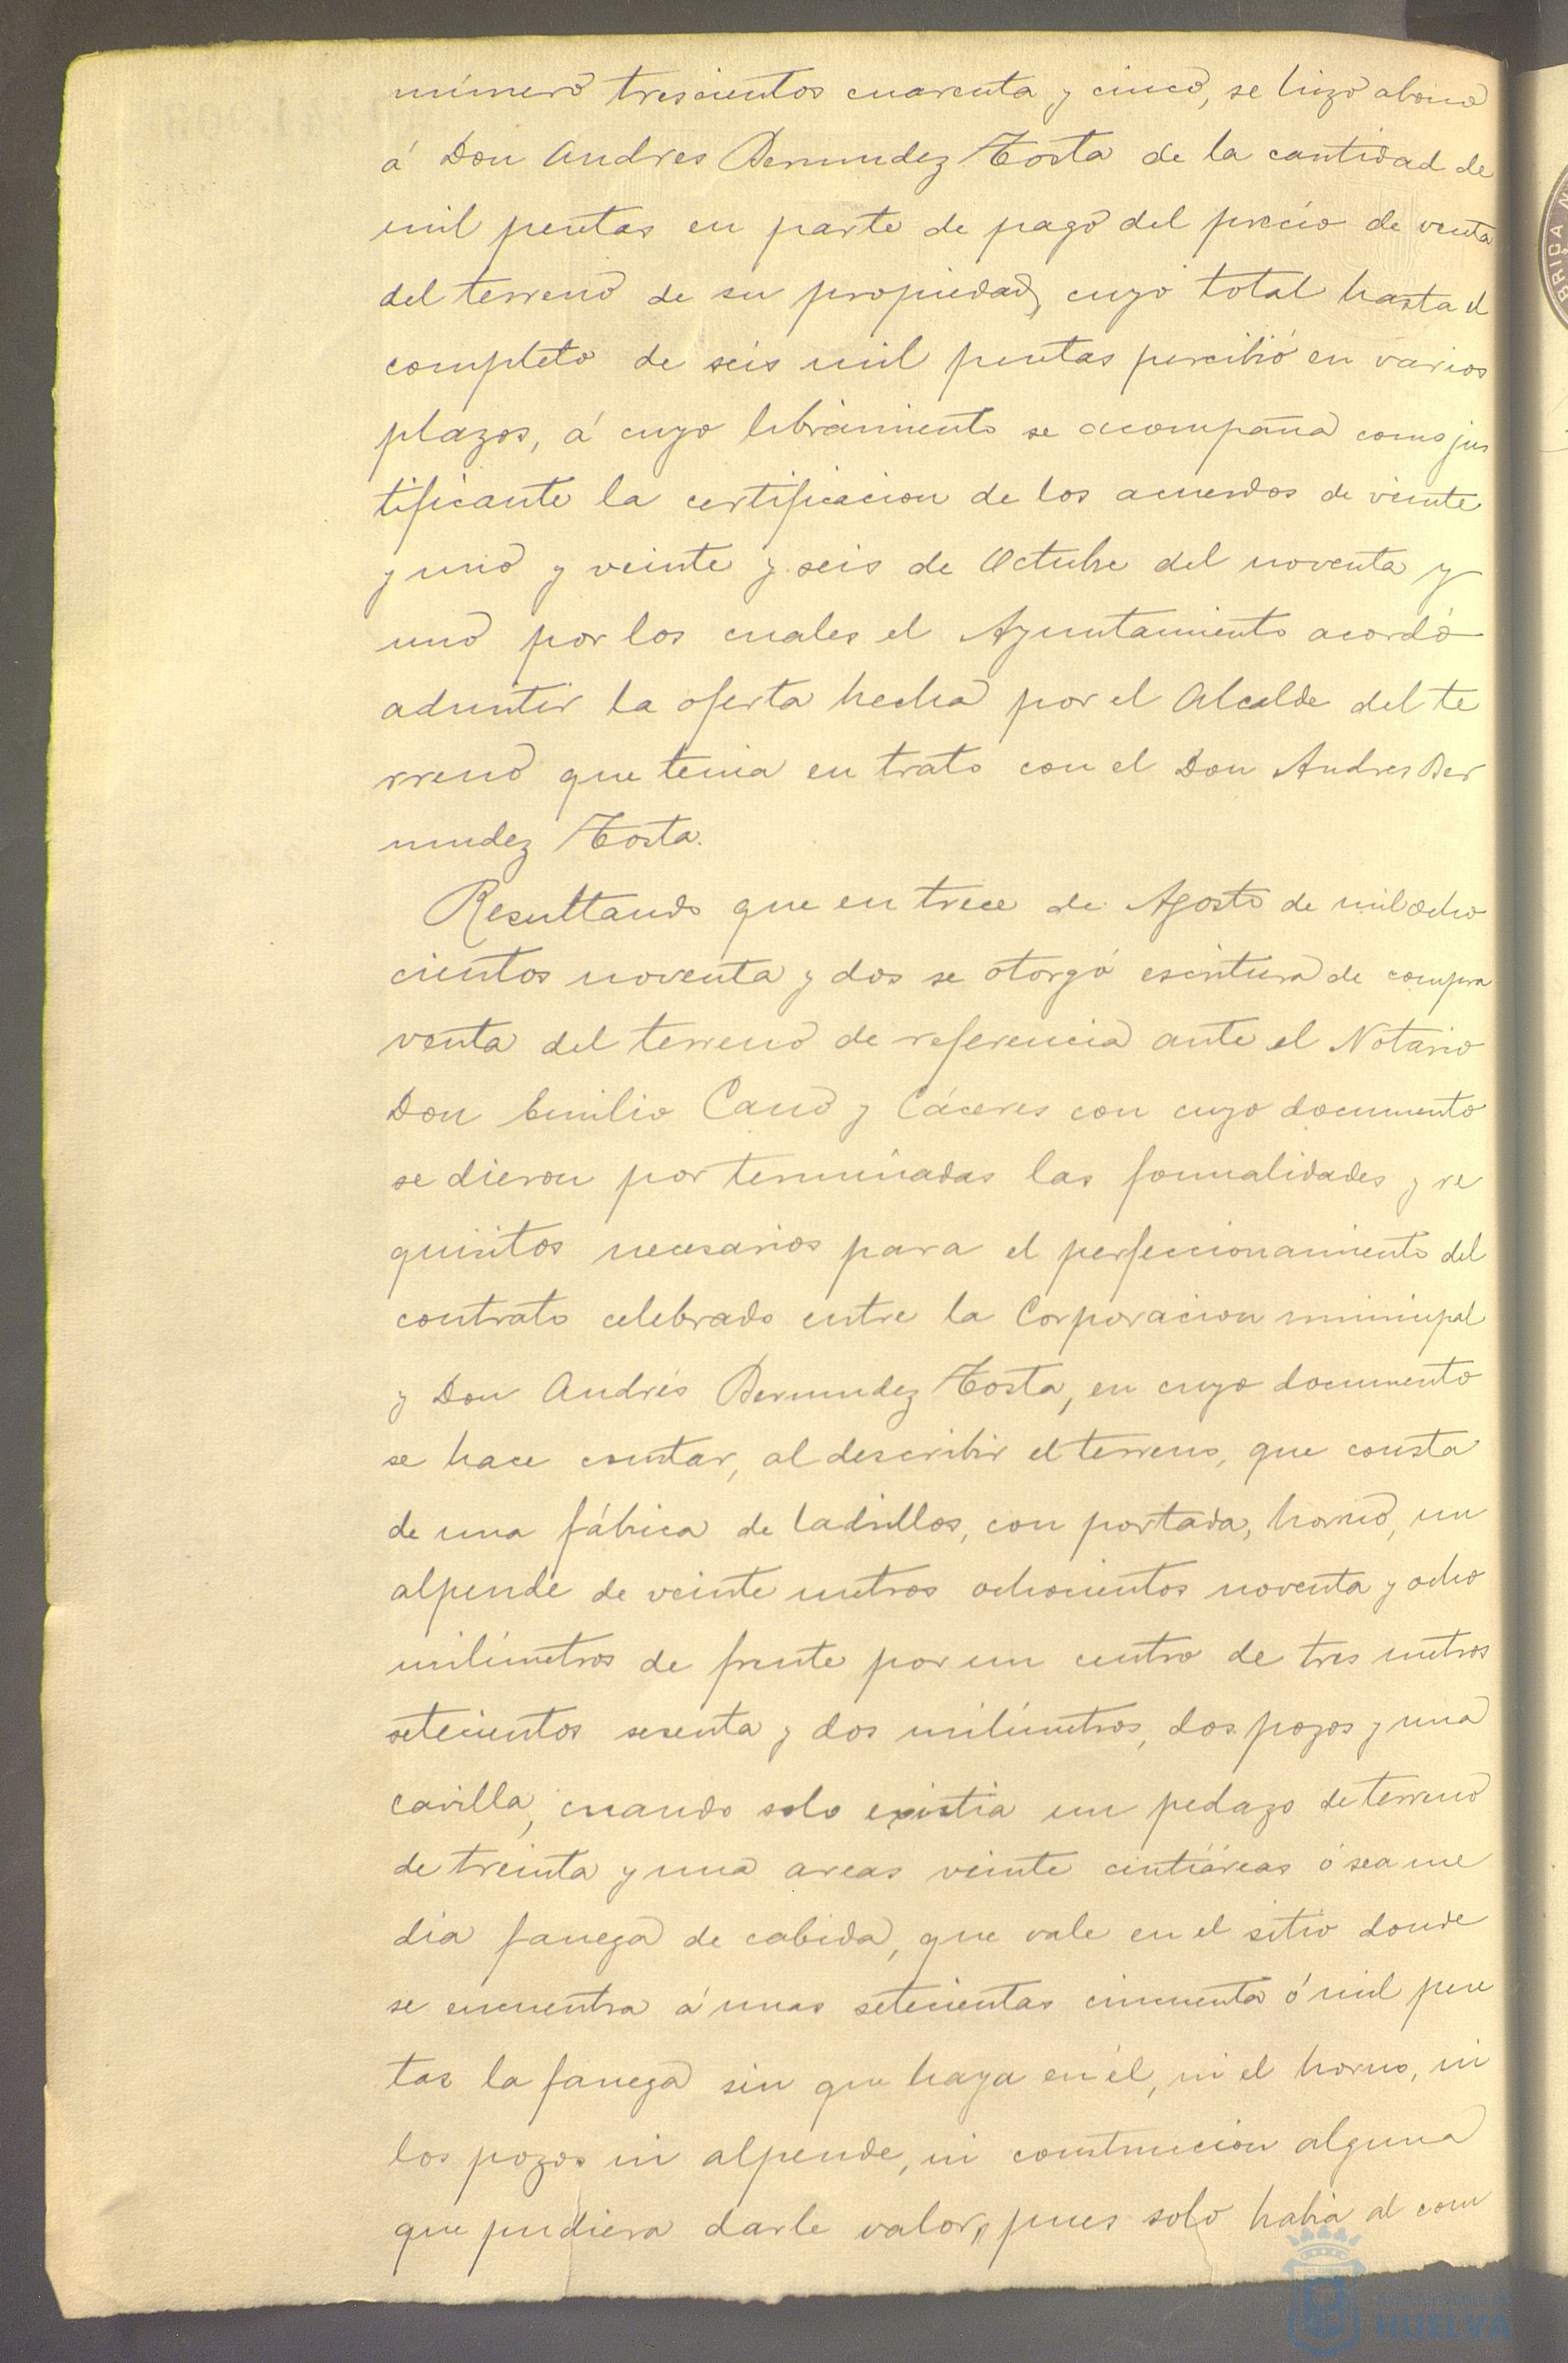 número trescientos cuarenta y cinco, se hizo abono
á Don Andres Bermudez Tosta de la cantidad de
mil pesetas en parte de pago del precio de venta
del terreno de su propiedad, cuyo total hasta el
completo de seis mil pesetas percibió en varios
plazos, á cuyo libramiento se acompaña como jus
tificante la certificacion de los acuerdos de veinte
y uno y veinte y seis de Octubre del noventa y
uno por los cuales el Ayuntamiento acordó
admitir la oferta hecha por el Alcalde del te
rreno que tenia en trato con el Don Andres Ber
mudez Tosta.
Resultando que en trece de Agosto de mil ocho
cientos noventa y dos se otorgó escritura de compra
venta del terreno de referencia ante el Notario
Don Emilio Cano y Cáceres con cuyo documento
se dieron por terminadas las formalidades y re
quisitos necesarios para el perfeccionamiento del
contrato celebrado entre la Corporacion municipal
y Don Andrés Bermudez Tosta, en cuyo documento
se hace constar, al describir el terreno, que consta
de una fábrica de ladrillos, con portada, horno, un
alpende de veinte metros ochocientos noventa y ocho
milímetros de frente por un centro de tres metros
setecientos sesenta y dos milímetros, dos pozos y una
cavilla, cuando solo existia un pedazo de terreno
de treinta y una areas veinte centiáreas ó sea me
dia fanega de cabida, que vale en el sitio donde
se encuentra á unas setecientas cincuenta ó mil pese
tas la fanega sin que haya en él, ni el horno, ni
los pozos ni alpende, ni construccion alguna
que pudiera darle valor, pues solo había al com
HUELVA